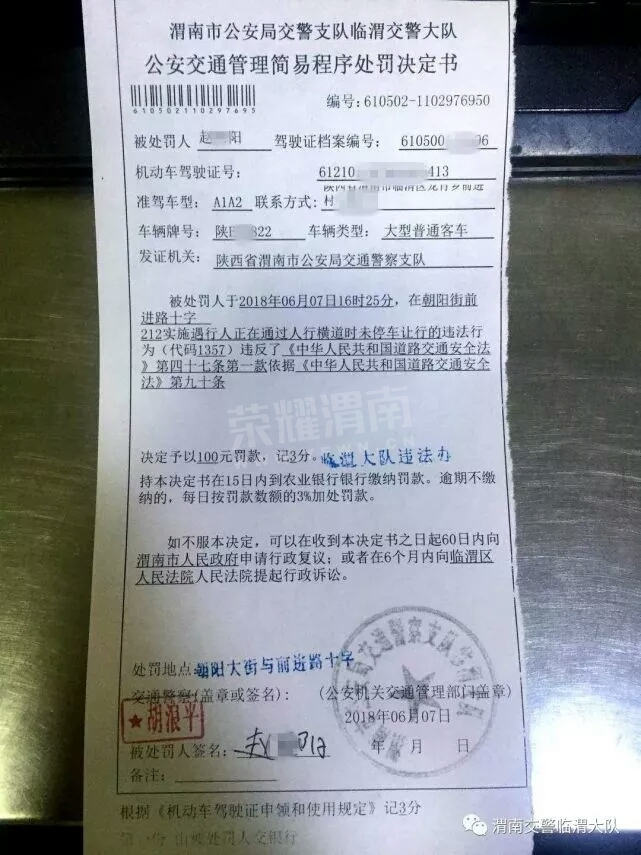 渭南市公安局交警支队临渭交警大队
公安交通管理简易程序处罚决定书
610502110297695
编号:610502-1102976950
被处罚人 赵 阳 驾驶证档案编号: 610500 06
机动车驾驶证号: 61210 413
陕西省渭南市临渭区 前进
准驾车型: A1A2 联系方式: 村
车辆牌号: 陕E 822 车辆类型: 大型普通客车
发证机关: 陕西省渭南市公安局交通警察支队
被处罚人于2018年06月07日16时25分,在朝阳街前
进路十字
212实施遇行人正在通过人行横道时未停车让行的违法行
为(代码1357)违反了《中华人民共和国道路交通安全法
》第四十七条第一款依据《中华人民共和国道路交通安全
法》第九十条
荣耀渭南
决定予以100元罚款,记3分。临渭大队违法办
持本决定书在15日内到农业银行银行缴纳罚款。逾期不缴
纳的,每日按罚款数额的3%加处罚款。
如不服本决定,可以在收到本决定书之日起60日内向
渭南市人民政府申请行政复议;或者在6个月内向临渭区
人民法院人民法院提起行政诉讼。
处罚地点:朝阳大街与前进路十字
交通警察(盖章或签名): (公安机关交通管理部门盖章)
胡浪平
2018年06月07日
被处罚人签名: 赵 阳 年 月 日
备注:
根据《机动车驾驶证申领和使用规定》记3分
由被处罚人交银行
渭南交警临渭大队